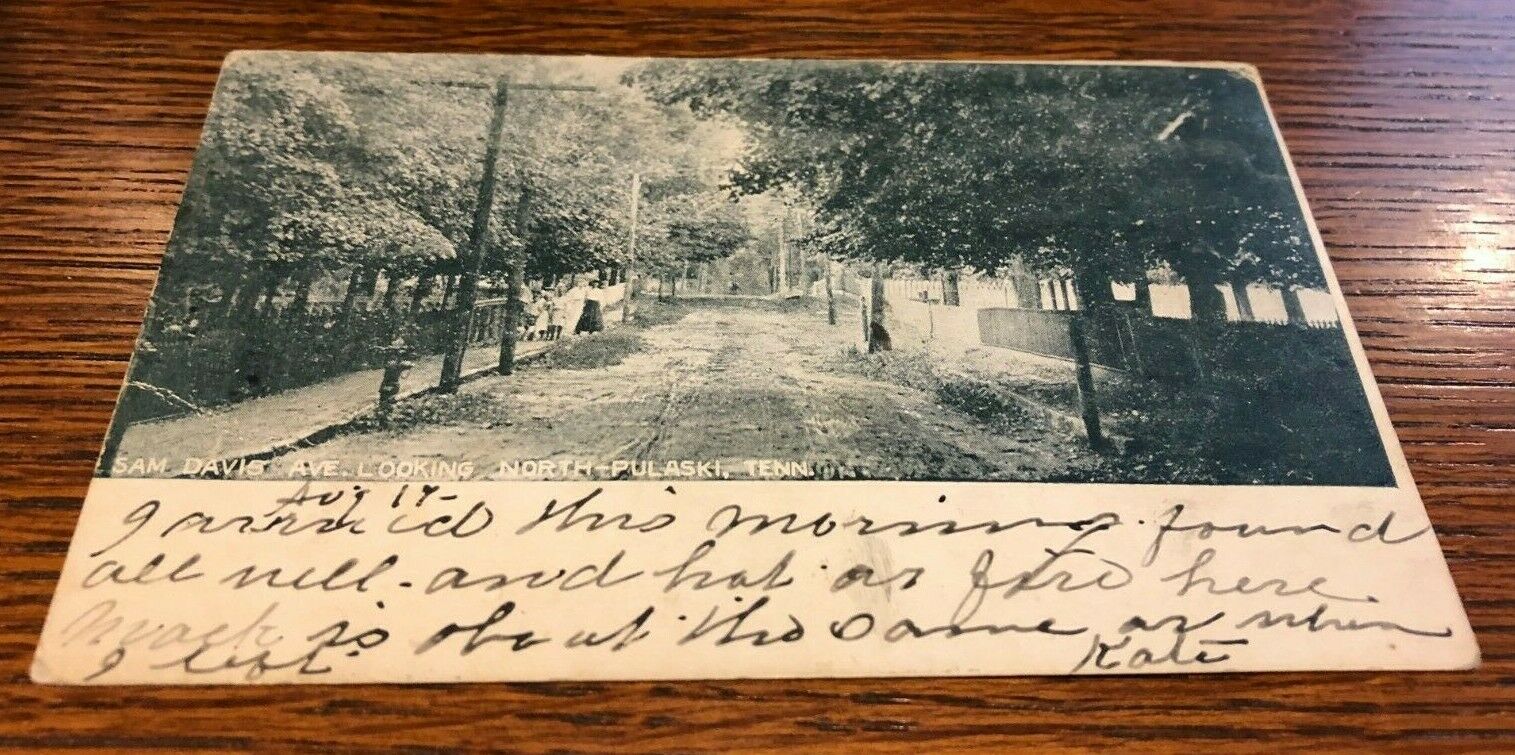 SAM DAVIS AVE. LOOKING NORTH-PULASKI, TENN.
Aug 17-
I arrived this morning. found
all well - and hot as fire here.
is about the same as when
I left. Kate